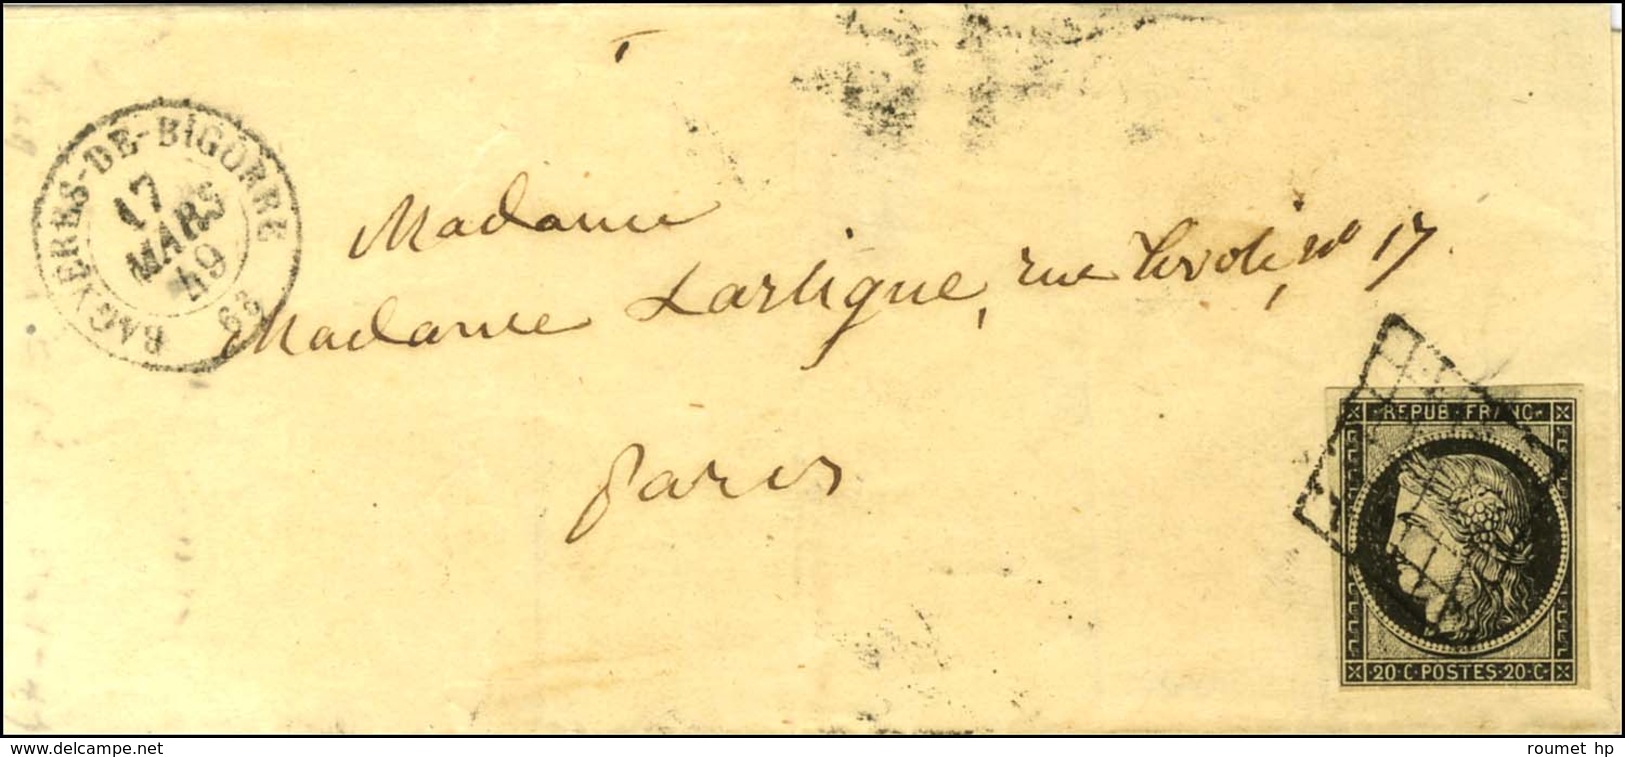 BAGNÈRES-DE-BIGORRE
17
MARS
49
Madame
Madame Lartigue, rue Rivoli, n° 17.
Paris
REPUB FRANC
20·C·POSTES·20·C
www.delcampe.net
roumet hp